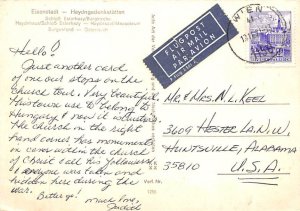 Eisenstadt — Haydngedenkstätten
Schloß Esterházy/Bergkirche
Haydnhaus/Schloß Esterházy — Haydnhof/Mausoleum
Burgenland — Österreich
Hello!
Just another card
of one our stops on the
Church tour. Very beautiful
This town use to belong to
Hungary & now it's Austria's.
The church in the right
hand corner has monuments
in caves within the church
of Christ call his followers.
Everyone was taken and
hidden here during the
war.
Better go! Much love,
Verl. Nr.
FLUGPOST
AIR MAIL
PAR AVION
WIEN
Mr. & Mrs. N. L. Keel
3609 Hester La. N.W.
Huntsville, Alabama
35810
U.S.A.